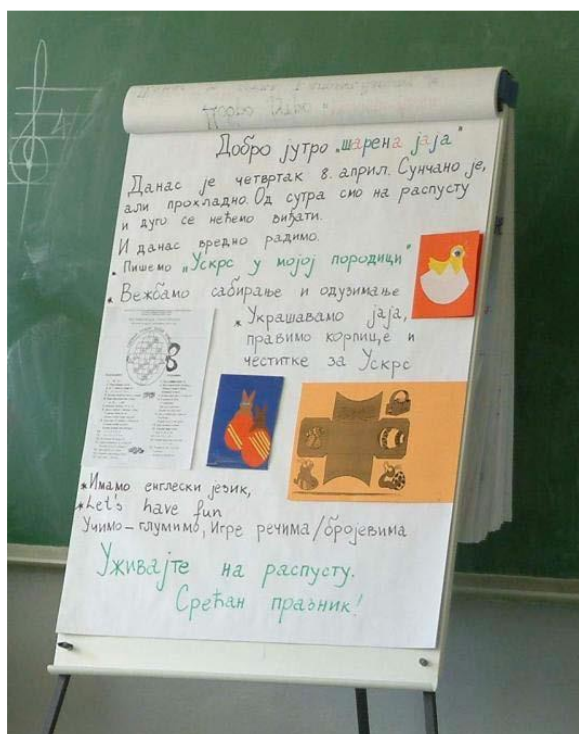 Добро јутро „шарена јаја"
Данас је четвртак 8. април. Сунчано је,
али прохладно. Од сутра смо на распусту
и дуго се нећемо виђати.
И данас вредно радимо.
• Пишемо „Ускрс у мојој породици"
* Вежбамо сабирање и одузимање
* Украшавамо јаја,
правимо корпице и
честитке за Ускрс
*Имамо енглески језик,
*Let's have fun
Учимо – глумимо, Игре речима/бројевима
Уживајте на распусту.
Срећан празник!